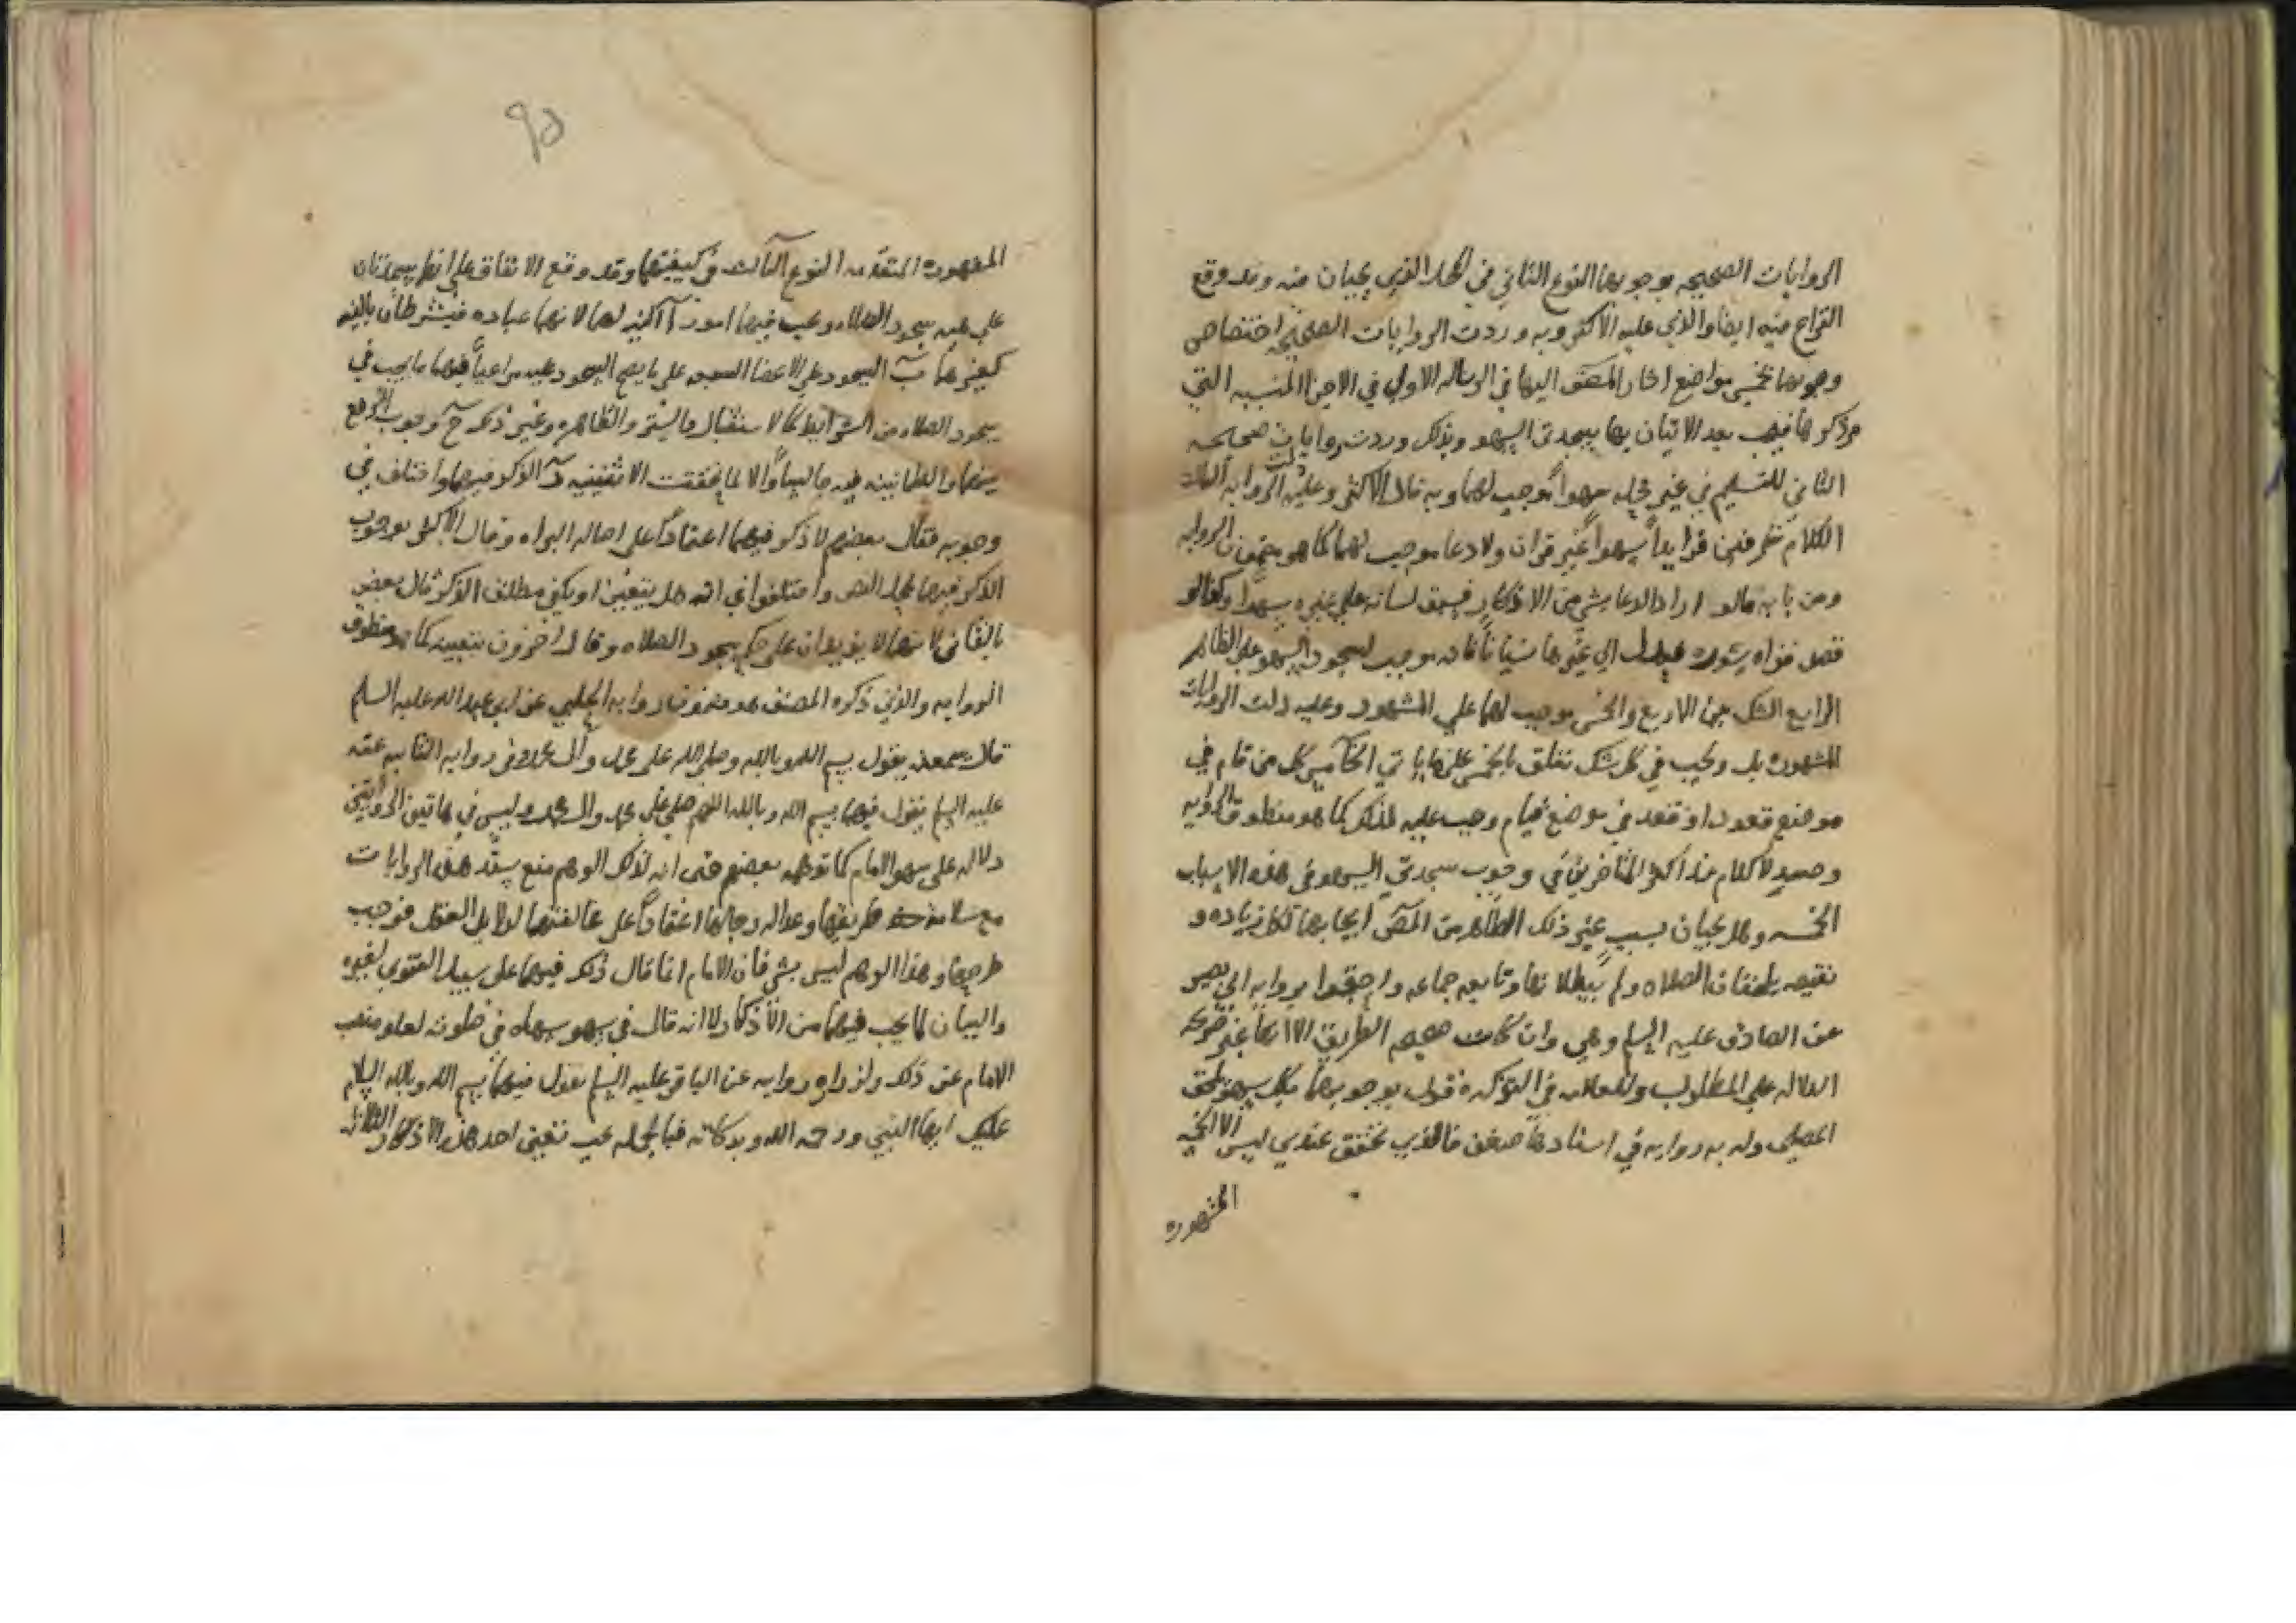 الروايات الصحيحه بوجوبهما النوع الثاني في المحل الذي يجبان منه وقد وقع
النزاع فيه ايضا والذي عليه الاكثر وبه وردت الروايات الصحيحه اختصاص
وجوبهما بخمس مواضع اشار المصنف اليها في الرساله الاولى في الاجزا المنسيه التي
مر ذكرها فيجب بعد الاتيان بها سجدتي السهو وبذلك وردت روايات صحيحه
الثاني التسليم في غير محله سهوا موجب لهما وبه قال الاكثر وعليه دلت الروايه الثالث
الكلام بحرفين فزايدا سهوا غير قران ولا دعا موجب لهما كما هو مضمون الروايه
ومن بابه مالو اراد الدعا بشي من الاذكار فسبق لسانه على غيره سهوا وكذا لو
قصد قراه سوره فعدل الي غيرها نسيانا فانه موجب لسجود السهو على الظاهر
الرابع الشك بين الاربع والخمس موجب لهما على المشهور وعليه دلت الروايات
المشهوره بل ويجب في كل شك تعلق بالخمس على ما ياتي الخامس كل من قام في
موضع قعود او قعد في موضع قيام وجب عليه ذلك كما هو منطوق الروايه
وحينيذ لا كلام عند اكثر المتاخرين في وجوب سجدتي السهو في هذه الاسباب
الخمسه وهل يجبان بسبب غير ذلك الظاهر من المصنف ايجابهما لكل زياده و
نقيصه يلحقان الصلاه ولم يبطلانها وتابعه جماعه واحتجوا بروايه ابي بصير
عن الصادق عليه السلم وهي وان كانت صحيحه الطريق الا انها غير صريحه
الدلاله على المطلوب وللعلامه في التذكره قول بوجوبهما بكل سهو يلحق
المصلي وله به روايه في اسنادها ضعف فالذي تحقق عندي ليس الا الخمسه
المشهوره
٩٥
المشهوره المتقدمه النوع الثالث في كيفيتهما وقد وقع الاتفاق على انهما سجدتان
على هيه سجود الصلاه ويجب فيهما امور آ النيه لهما لانهما عباده فيشترطان بالنيه
كغيرهما ب السجود على الاعضا السبعه على ما يصح السجود عليه مراعيا فيهما ما يجب في
سجود الصلاه من الشرايط كالاستقبال والستر والطهاره وغير ذلك ج وجوب الرفع
بينهما والطمانينه فيه جالسا والا لما تحققت الاثنينيه د الذكر فيهما واختلف في
وجوبه فقال بعضهم لا ذكر فيهما اعتمادا على اصاله البراه وقال الاكثر بوجوب
الذكر فيهما لمحل النص واختلفوا في انه هل يتعين او يكفي مطلق الذكر قال بعض
بالثاني لانهما لا يزيدان على حكم سجود الصلاه وقال اخرون بتعيينه كما هو منطوق
الروايه والذي ذكره المصنف هو مضمون روايه الحلبي عن ابي عبد الله عليه السلم
قال سمعته يقول بسم الله وبالله وصلى الله على محمد وال محمد وفي روايه الثانيه عنه
عليه السلم يقول فيهما بسم الله وبالله اللهم صلي على محمد وال محمد وليس في هاتين الروايتين
دلاله على سهو الامام كما توهمه بعضهم حتى انه لذلك الوهم منع سند هذه الروايات
مع سلامه طريقها وعداله رجالها اعتقادا على مخالفتهما لدلايل العقل فوجب
طرحها وهذا الوهم ليس بشي فان الامام انما قال ذلك فيهما على سبيل الفتوى لغيره
والبيان لما يجب فيهما من الاذكار لا انه قال في سهو سهاه في صلوته لعلو منصب
الامام عن ذلك ولزراره روايه عن الباقر عليه السلم يقول فيهما بسم الله وبالله السلام
عليك ايها النبي ورحمه الله وبركاته فبالجمله يجب تعيين احد هذه الاذكار الثلاثه